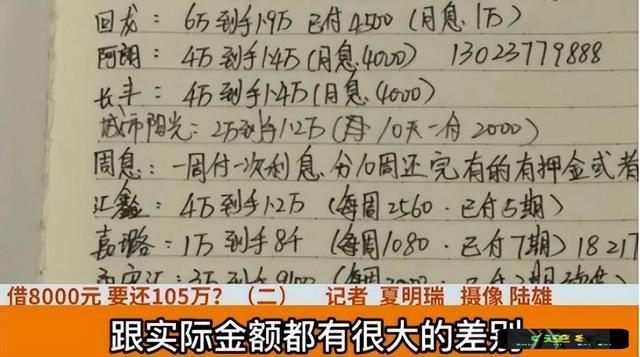 回龙： 6万到手1.9万 已付4500 (月息1万)
阿朗： 4万到手1.4万 (月息4000) 13023779888
长丰： 4万到手1.4万 (月息4000)
城市阳光： 2万到手1.2万 (每10天一付2000)
周息： 一周付一次利息、分10周还完有的有押金或者
汇鑫： 4万到手1.2万 (每周2560·已付5期)
嘉璐： 1万到手8千 (每周1080·已付7期) 18217
3万到手9100
借8000元 要还105万？（二） 记者 夏明瑞 摄像 陆雄
跟实际金额都有很大的差别